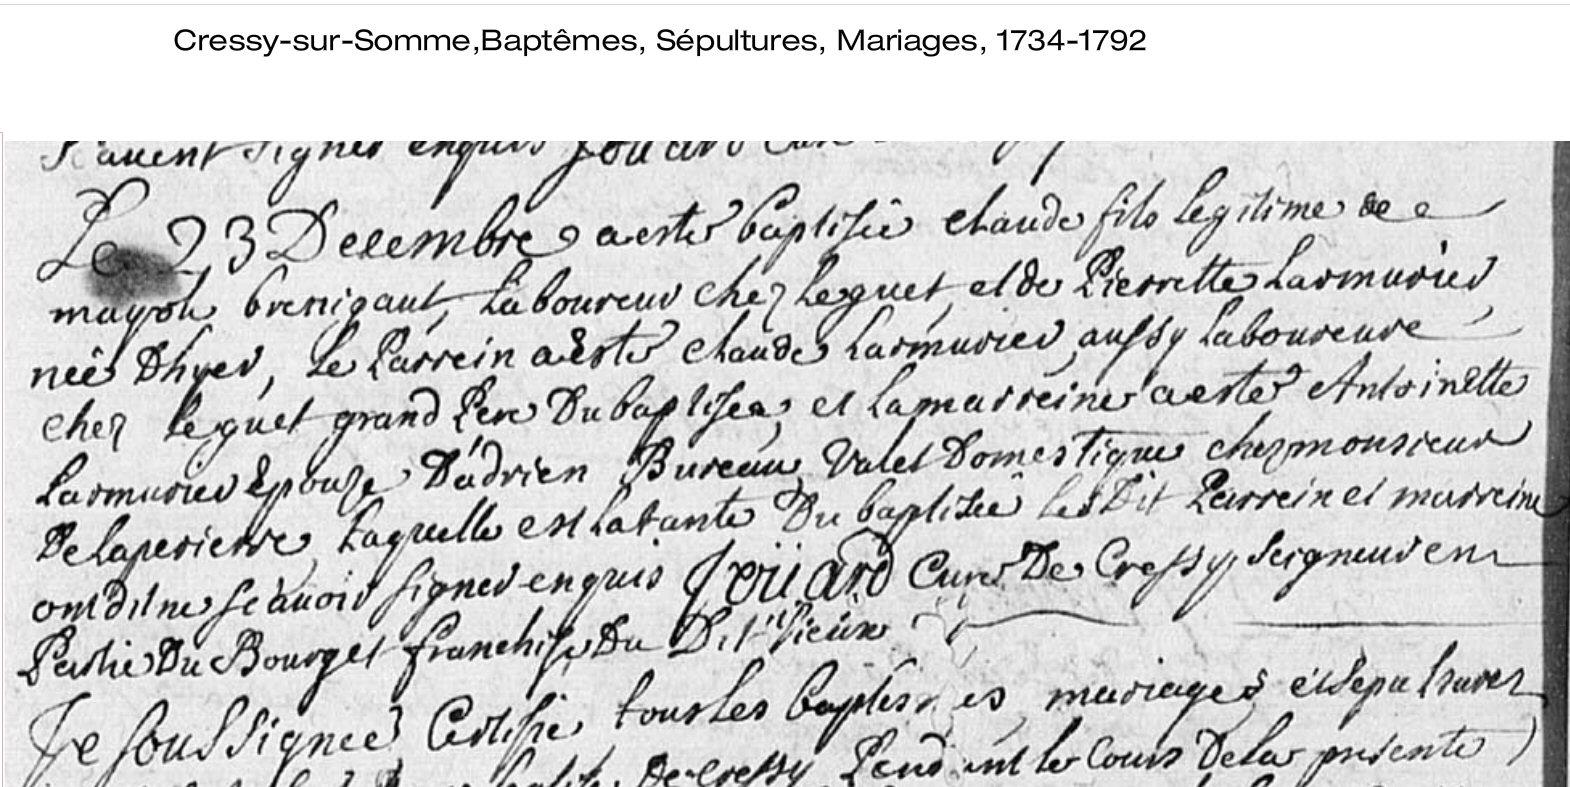 Cressy-sur-Somme,Baptêmes, Sépultures, Mariages, 1734-1792
signer enquis Joüard Curé
Le 23 Decembre a esté baptisée claude fils Legitime de
brenigaut, Laboureur chez Le guet, et de Pierrette Larmurier
née D'hyer, Le Parrein a esté claude Larmurier, aussy Laboureure
chez Le guet grand Pere Du baptisée, et La marreine a esté Antoinette
Larmurier Epouze D'adrien Bureau, Valet Domestique chez monsieur
De laperierre, Laquelle est La tante Du baptisée les Dit Parrein et marreine
ont dit ne sçavoir signer enquis Joüard Curé De Cressy Seigneur en
Partie Du Bourg et franchise Du Dit Lieux
Je soussignée Certifie tous Les baptesmes mariages et sepultures
De Cressy Pendant le Cours De La presente